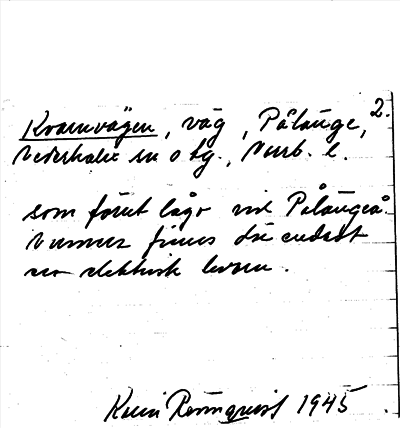 2.
Kvarnvägen, väg, Pålänge,
Nederkalix sn o tg., Nbtt. l.
som förut låge vid Pålängeå.
Nummer finnes där endast
en elektrisk kvarn.
Karin Rönnquist 1945